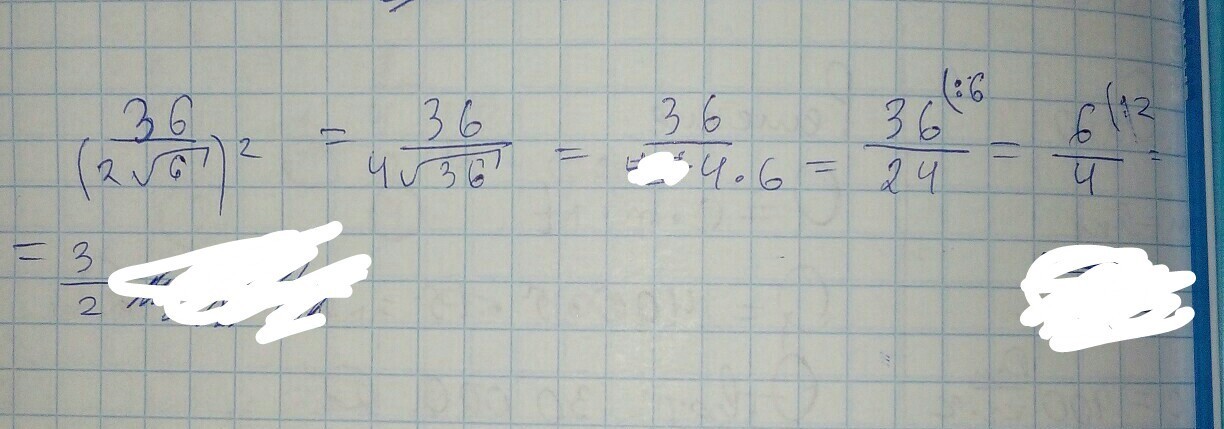 36/(2√6)² = 36/4√36 = 36/4·6 = 36/24 (:6 = 6/4 (:2 =
= 3/2